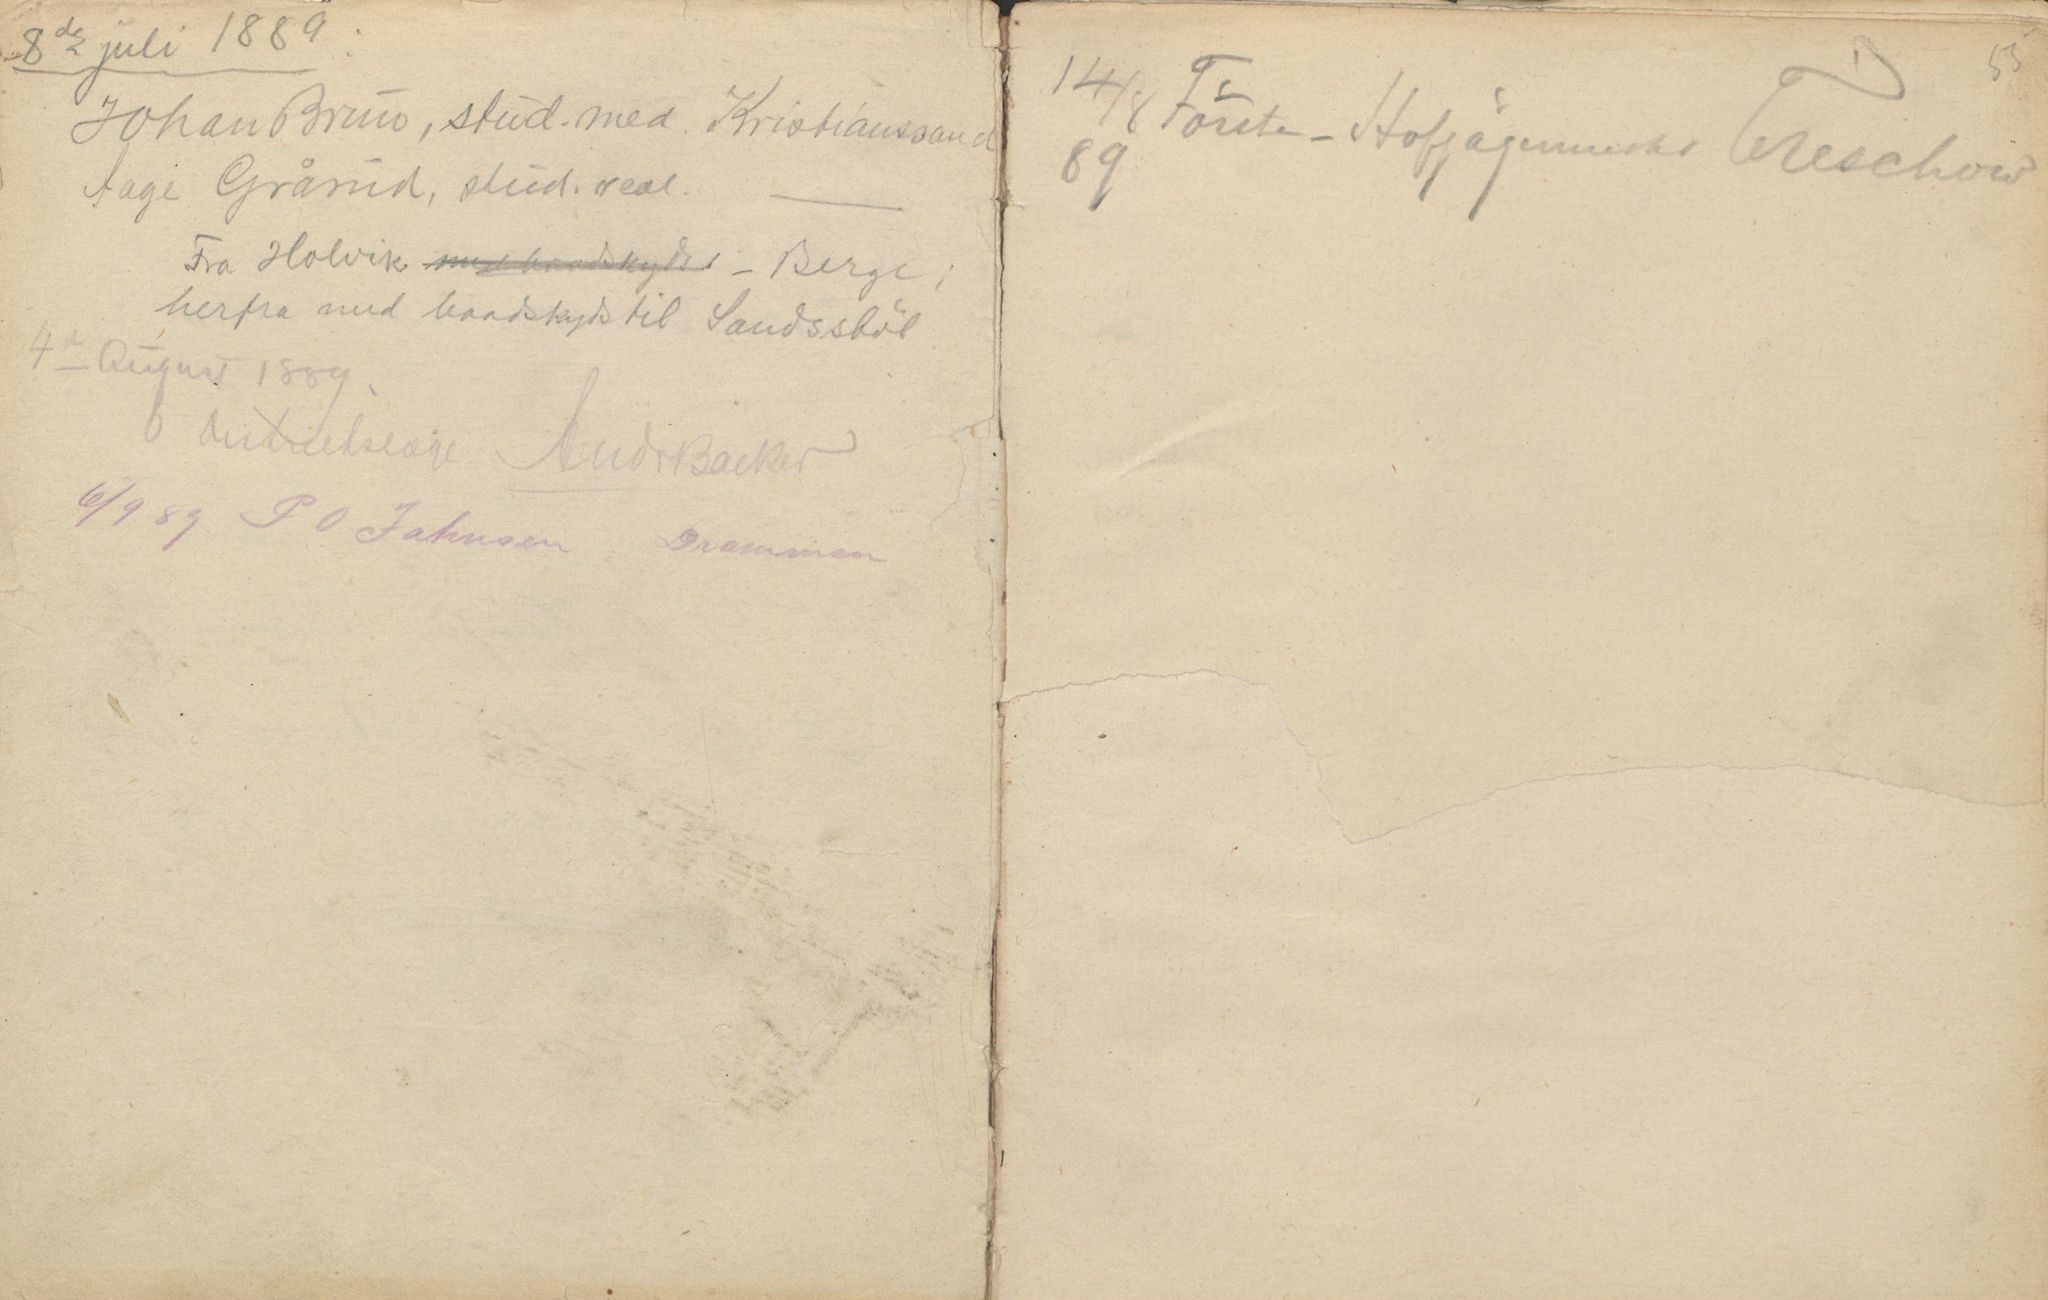 8de juli 1889:
Johan Bruun, stud. med. Kristianssand
Aage Grårud, stud. real. —
Fra Holvik med baadskyds - Berge;
herfra med baadskyds til Sandsstöl
4de August 1889.
Distriktslæge Andr Backer
6/9 89 P O Jahnsen Drammen
55
14/8 89 Förste-Hofjägermester Treschow